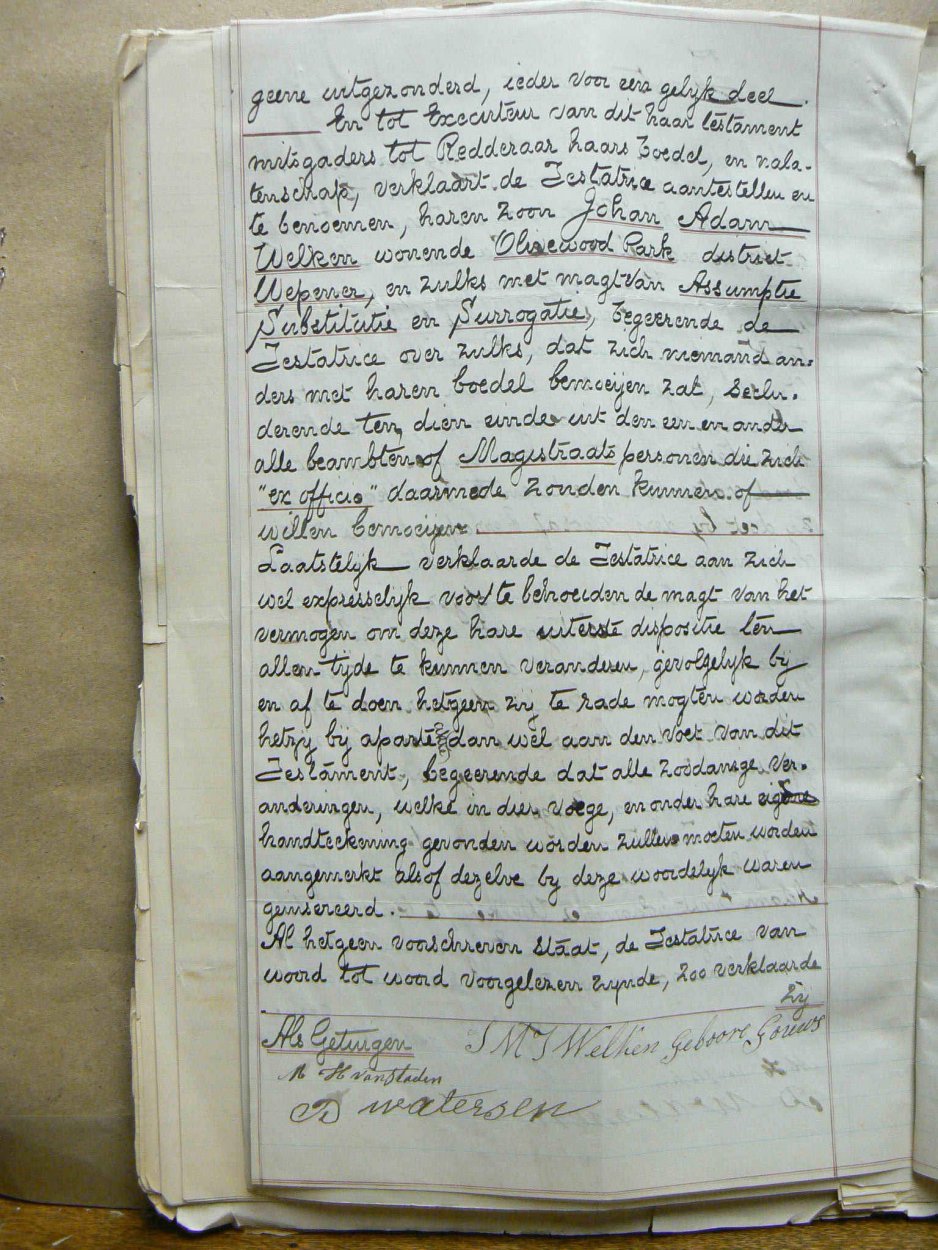 geene uitgezonderd, ieder voor een gelyk deel.
En tot Executeur van dit haar testament
mitsgaders tot Redderaar haars boedel, en nala-
tenschap, verklaart de Testatrice aantestellen en
te benoemen, haren zoon Johan Adam
Welken wonende Olivewood Park district
Wepener, en zulks met magt van Assumptie
Substitutie en Surrogatie, begeerende de
Testatrice over zulks, dat zich niemand an-
ders met haren boedel bemoeijen zat, seclu-
derende ten dien einde uit den een en ander
alle beambten of Magistraats personen die zich
"ex officio" daarmede zouden kunnen of
willen bemoeijen
Laatstelyk verklaarde de Testatrice aan zich
wel expresselyk voor te behouden de magt van het
vermogen om deze hare uiterste dispositie ten
allen tyde te kunnen veranderen, gevolgelyk by
en af te doen hetgeen zy te rade mogten worden
hetzy by aparte dan wel aan den voet van dit
Testament, begeerende dat alle zoodanige ver-
anderingen, welke in dier voege, en onder hare
handteekening gevonden worden zullen moeten worden
aangemerkt alsof dezelve by deze woordelyk waren
geinsereerd.
Al hetgeen voorschreven staat, de Testatrice van
woord tot woord voorgelezen zynde, zoo verklaarde
zy
Als Getuigen
J M J Welken geboore Gouws
M H van Staden
watersen